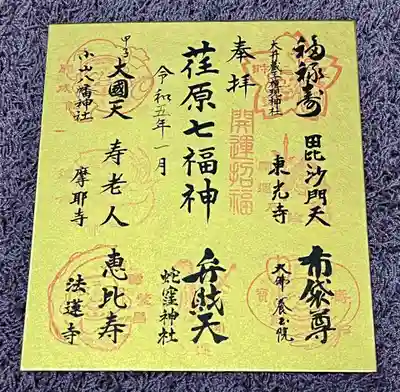 福禄寿
大井蔵王権現神社
毘沙門天
東光寺
布袋尊
大佛養玉院
奉拝
開運招福
荏原七福神
令和五年一月
弁財天
蛇窪神社
大國天
小山八幡神社
寿老人
摩耶寺
恵比寿
法蓮寺